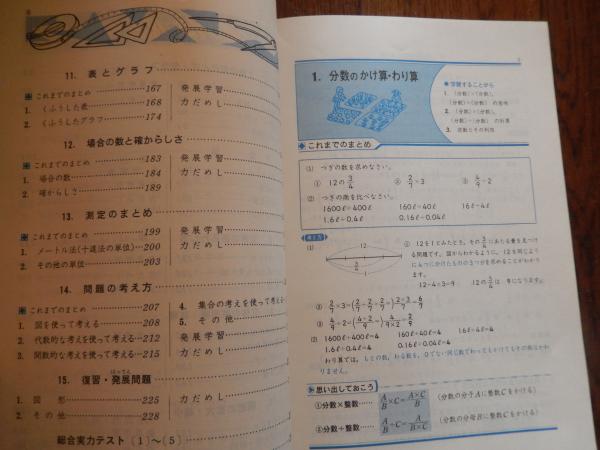 11. 表とグラフ
これまでのまとめ 167
1. くふうした表 168
2. くふうしたグラフ 174
発展学習
力だめし
12. 場合の数と確からしさ
これまでのまとめ 183
1. 場合の数 184
2. 確からしさ 189
発展学習
力だめし
13. 測定のまとめ
これまでのまとめ 199
1. メートル法(十進法の単位) 200
2. その他の単位 203
発展学習
力だめし
14. 問題の考え方
これまでのまとめ 207
1. 図を使って考える 208
2. 代数的な考えを使って考える 212
3. 関数的な考えを使って考える 215
4. 集合の考えを使って考える
5. その他
発展学習
力だめし
15. 復習・発展問題
はってん
1. 図形 225
2. その他 228
力だめし
総合実力テスト (1)〜(5)
1. 分数のかけ算・わり算
学習することがら
1. (分数)×(分数),
(分数)÷(分数) の意味
2. (分数)×(分数),
(分数)÷(分数) の計算
3. 逆数とその利用
これまでのまとめ
(1) つぎの数を求めなさい。
① 12の3/4 ② 2/7×3 ③ 4/9÷2
(2) つぎの商を比べなさい。
1600ℓ÷400ℓ 160ℓ÷40ℓ 16ℓ÷4ℓ
1.6ℓ÷0.4ℓ 0.16ℓ÷0.04ℓ
考え方
(1) 12 3/4
① 12を1とみたとき,その3/4にあたる量を見つけ
る問題です。図からわかるように,12を同じよう
に4つに分けたものの3つ分を求めることがわかり
ます。
12÷4×3=9 12の3/4は 9になります。
② 2/7×3=(2/7+2/7+2/7)=2×3/7=6/7
③ 4/9÷2=4/9×2=2/9
(2) 1600ℓ÷400ℓ=4 160ℓ÷40ℓ=4 16ℓ÷4ℓ=4
1.6ℓ÷0.4ℓ=4 0.16ℓ÷0.04ℓ=4
わり算では,
思い出しておこう
①分数×整数…… A/B×C=A×C/B (分数の分子Aに整数Cをかける)
②分数÷整数…… A/B÷C=A/B×C (分数の分母Bに整数Cをかける)